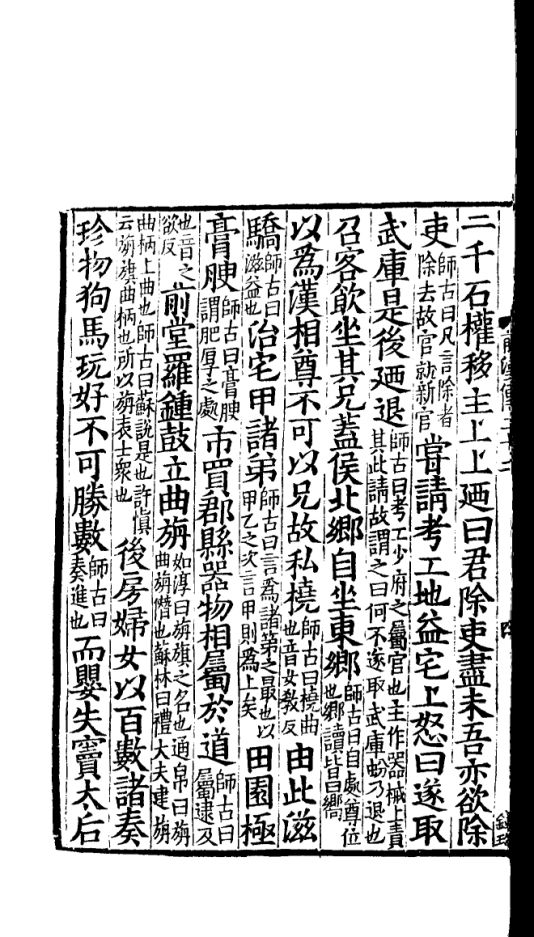 二千石權移主上上廼曰君除吏盡未吾亦欲除
吏師古曰凡言除者除去故官就新官嘗請考工地益宅上怒曰遂取
武庫是後廼退師古曰考工少府之屬官也主作器械上責其此請故謂之曰何不遂取武庫蚡乃退也
召客飲坐其兄蓋侯北鄉自坐東鄉師古曰自處尊位也鄉讀皆曰嚮
以爲漢相尊不可以兄故私橈師古曰橈曲也音女敎反由此滋
驕師古曰滋益也治宅甲諸弟師古曰言爲諸第之最也以甲乙之次言甲則爲上矣田園極
膏腴師古曰膏腴謂肥厚之處市買郡縣器物相屬於道師古曰屬逮及
也音之欲反前堂羅鍾鼓立曲旃如淳曰旃旗之名也通帛曰旃曲旃僭也蘇林曰禮大夫建旃
曲柄上曲也師古曰蘇說是也許愼云旃旗曲柄也所以旃表士衆也後房婦女以百數諸奏
珍物狗馬玩好不可勝數師古曰奏進也而嬰失竇太后